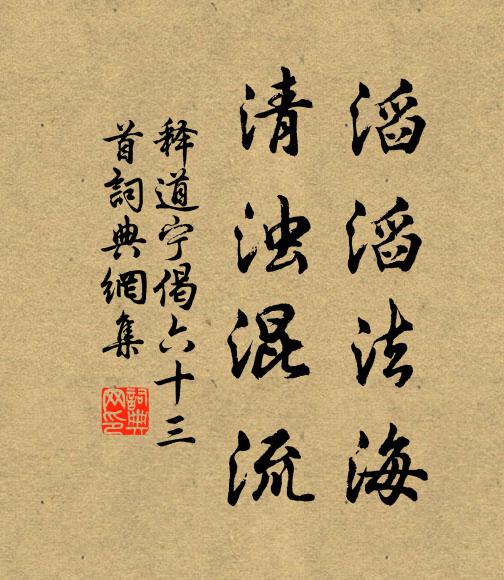 滔滔法海
清浊混流
释道宁偈六十三
首詞典網集
詞典
网印